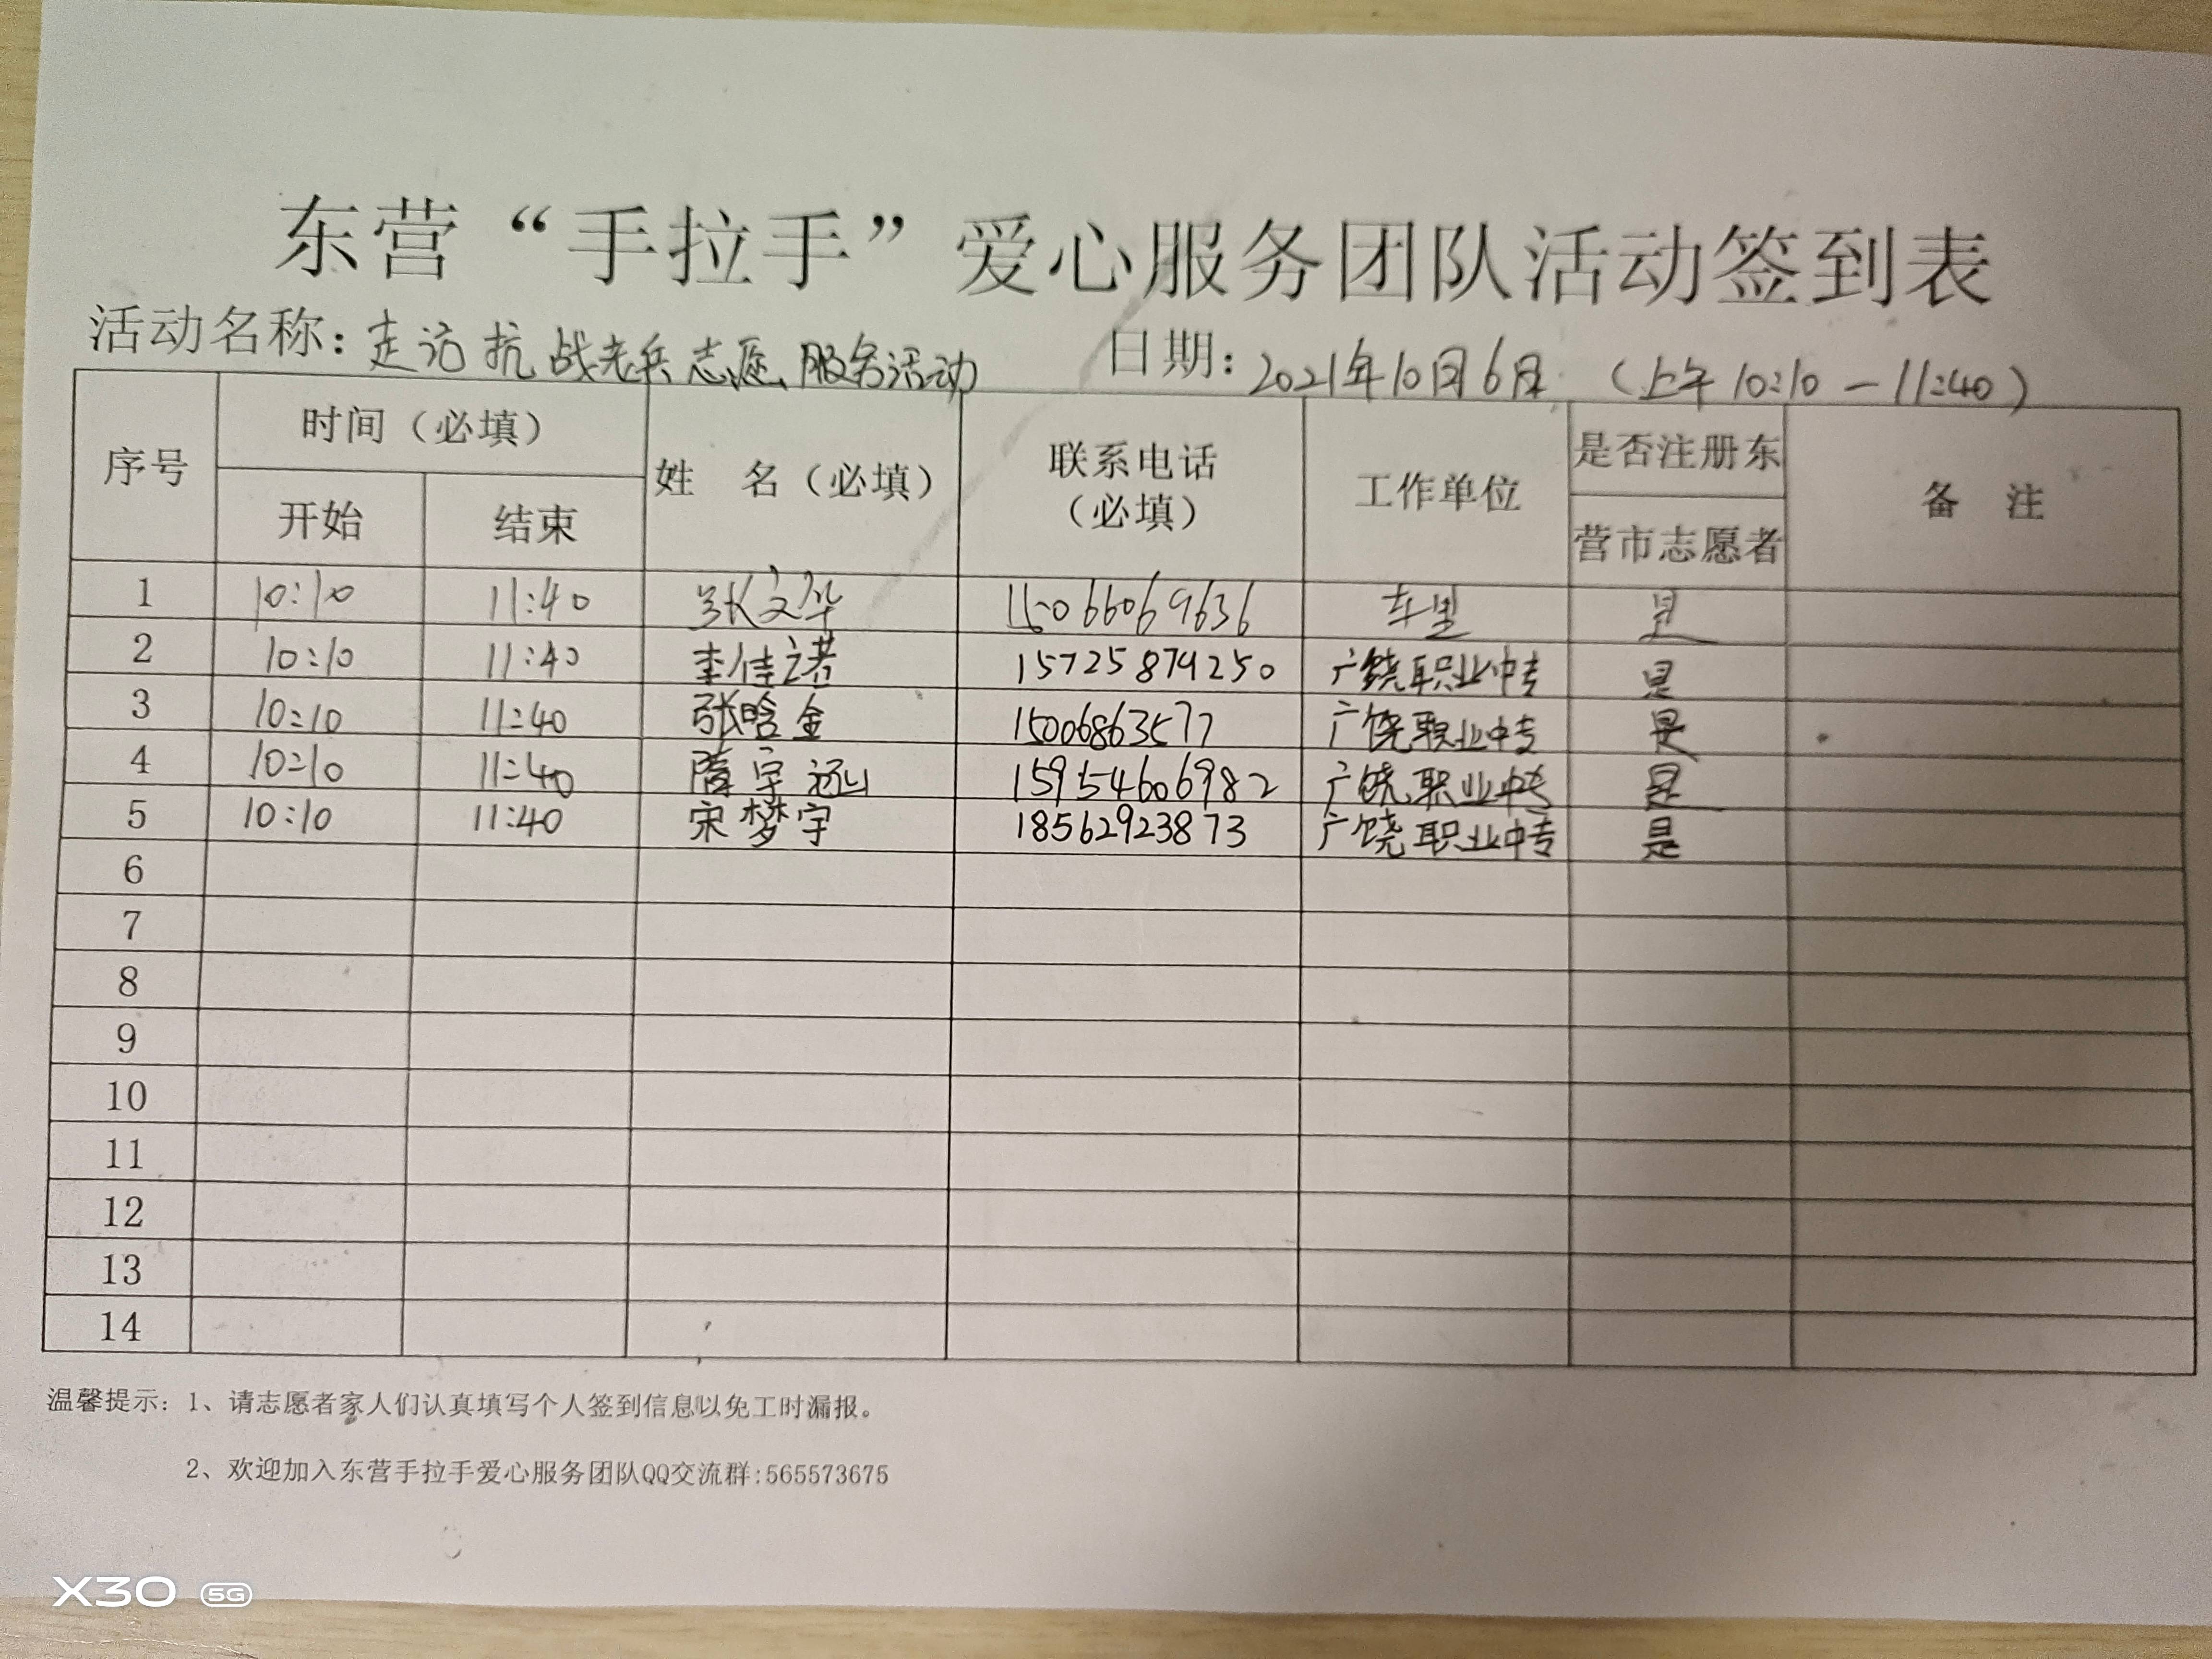 东营“手拉手”爱心服务团队活动签到表
活动名称：走访抗战老兵志愿服务活动 日期：2021年10月6日 （上午10:10－11:40）
序号 时间（必填） 姓 名（必填） 联系电话（必填） 工作单位 是否注册东营市志愿者 备 注
开始 结束
1 10:10 11:40 张文华 15066069636 是
2 10:10 11:40 李佳诺 15725879250 广饶职业中专 是
3 10:10 11:40 张晗金 15006863577 广饶职业中专 是
4 10:10 11:40 隋宇 15954606982 广饶职业中专 是
5 10:10 11:40 宋梦宇 18562923873 广饶职业中专 是
6
7
8
9
10
11
12
13
14
温馨提示：1、请志愿者家人们认真填写个人签到信息以免工时漏报。
2、欢迎加入东营手拉手爱心服务团队QQ交流群:565573675
X30 5G